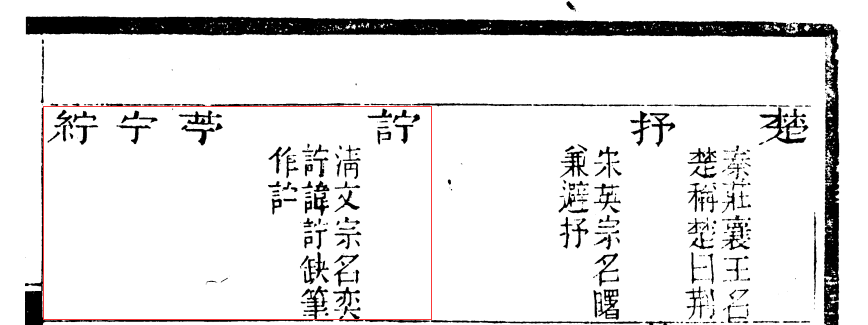 楚
秦莊襄王名
楚稱楚曰荆
抒
朱英宗名曙
兼避抒
詝
清文宗名奕
詝諱詝缺筆
作
苧
宁
紵